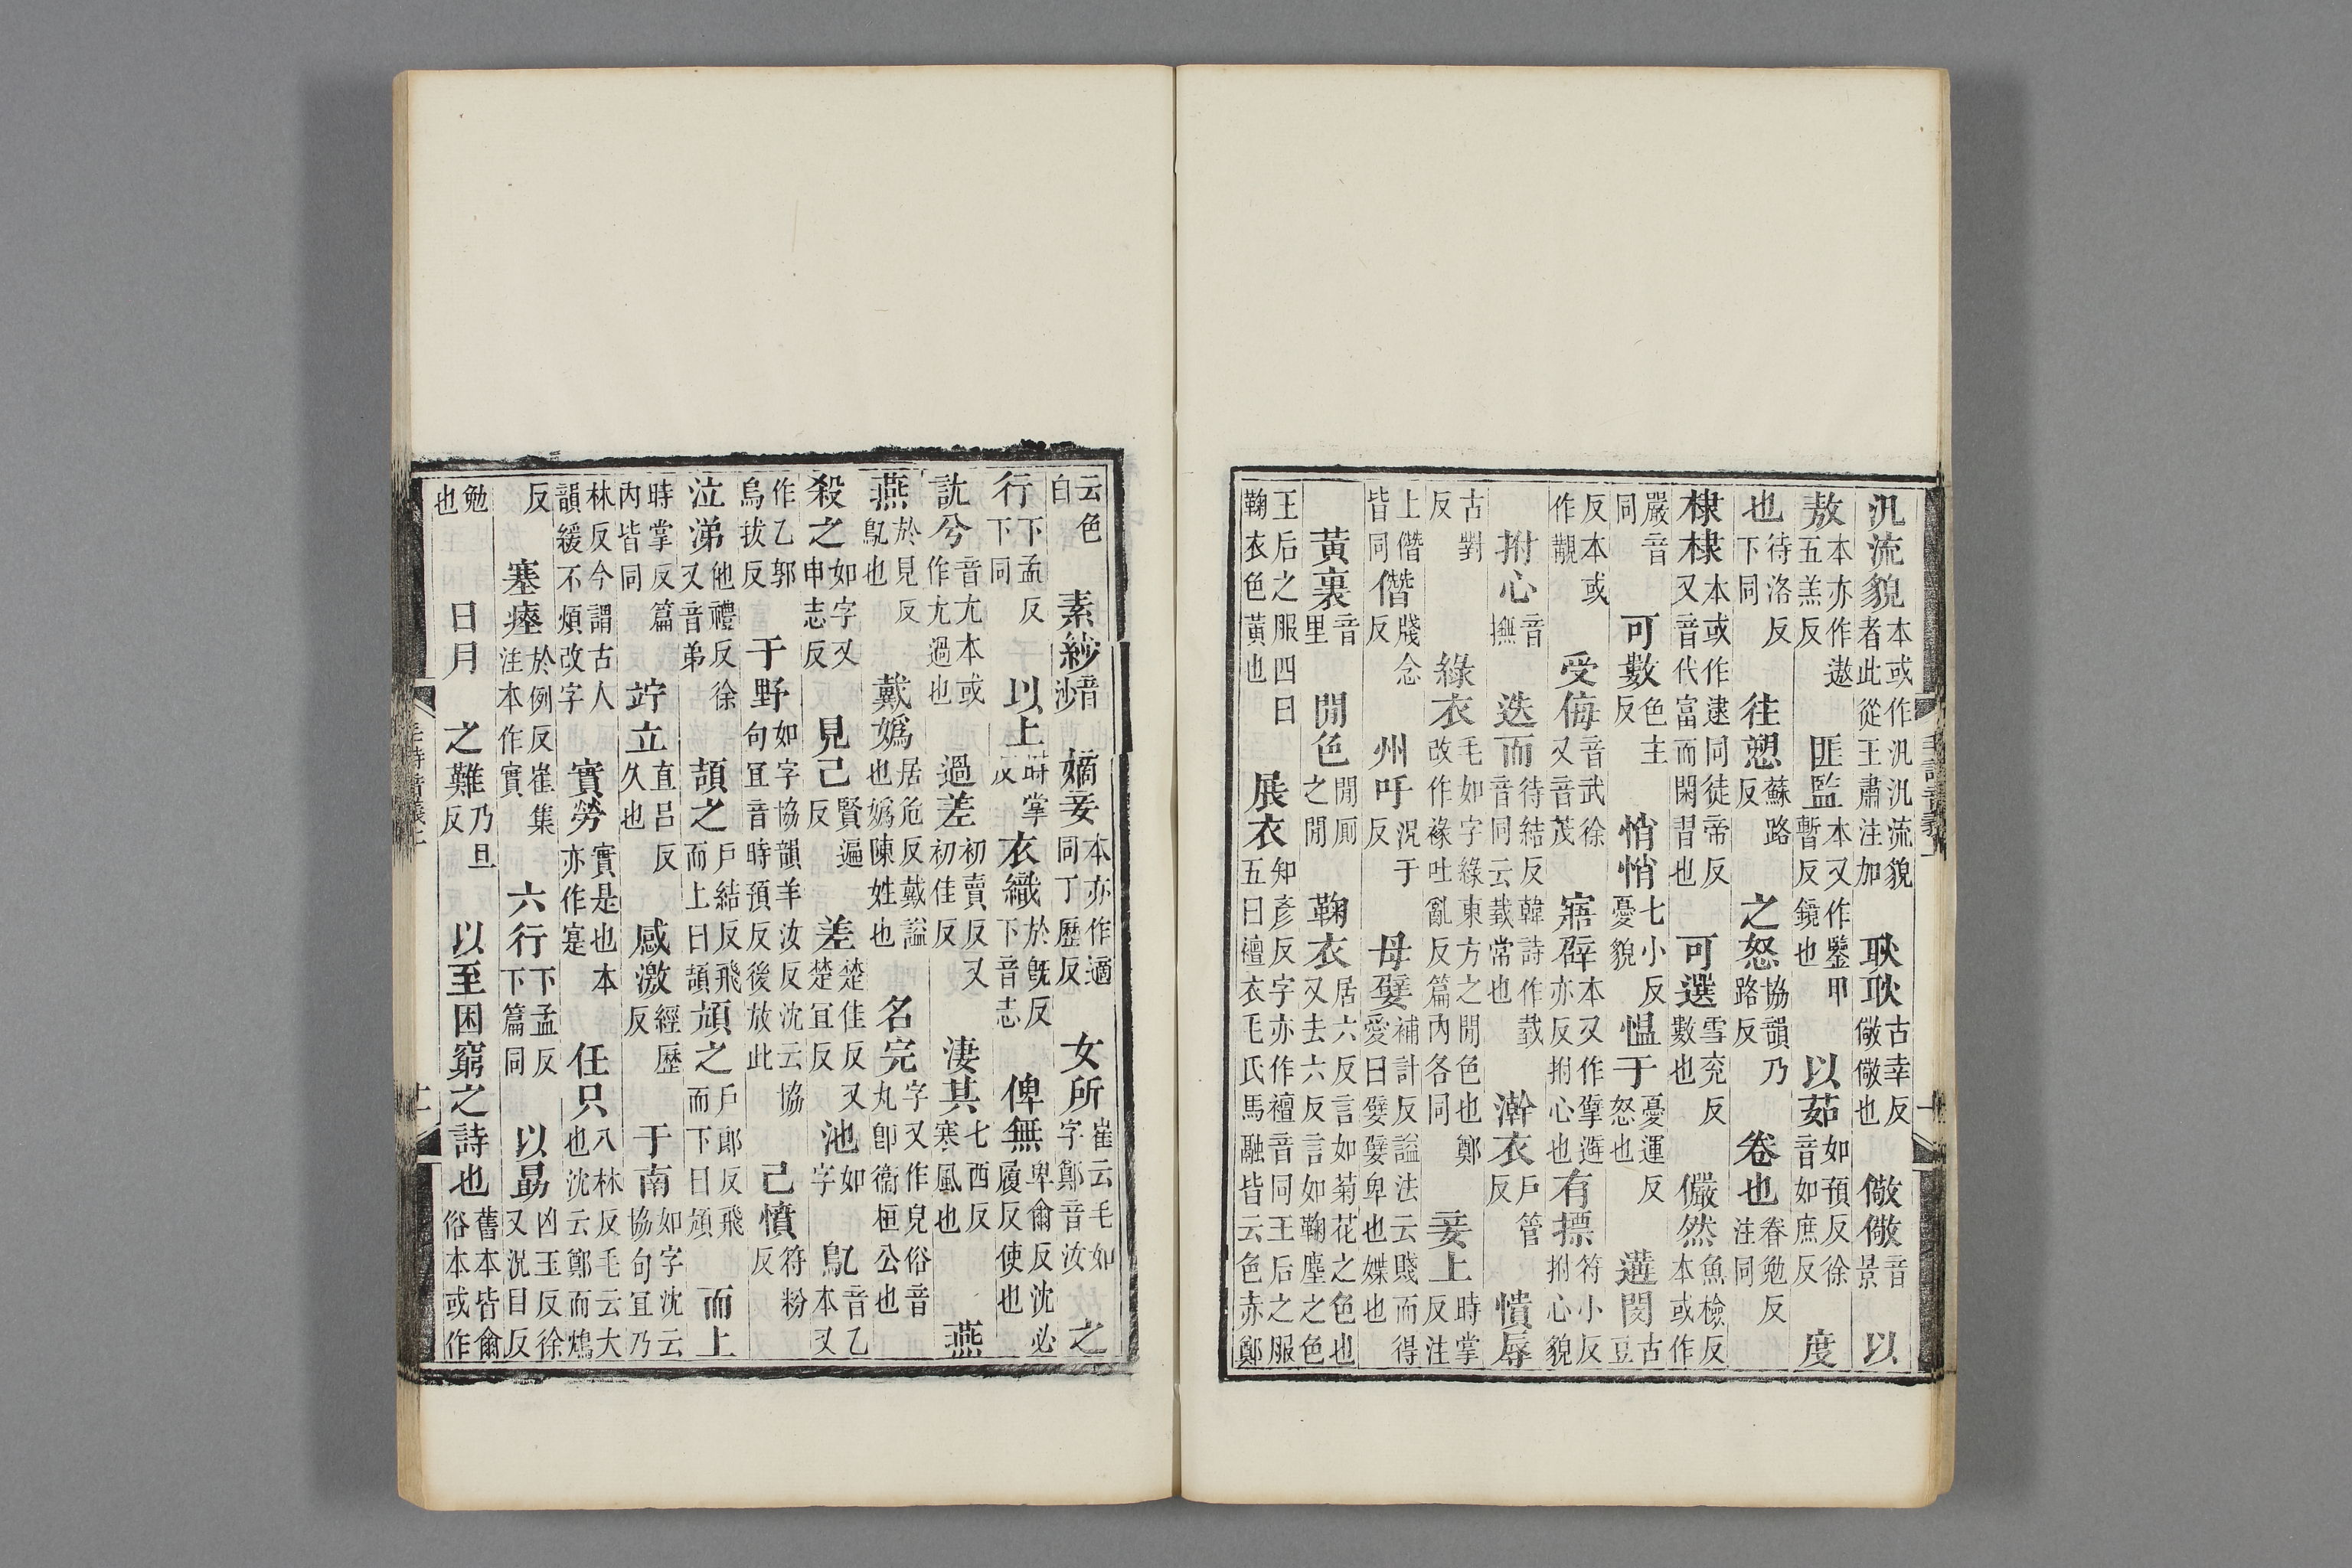 汎流貌本或作汎汎流貌者此從王肅注加耿耿古幸反儆儆也儆儆音景以
敖本亦作遨五羔反匪監本又作鑒甲暫反鏡也以茹如預反徐音如庶反度
也待洛反下同往愬蘇路反之怒協韻乃路反卷也眷勉反注同
棣棣本或作逮同徒帝反又音代富而閑習也可選雪兖反數也儼然魚檢反本或作
嚴音同可數色主反悄悄七小反憂貌慍于憂運反怒也遘閔古豆
反本或作覯受侮音武徐又音茂寤擗本又作擘避亦反拊心也有摽符小反拊心貌
拊心音撫迭而待結反韓詩作臷音同云臷常也澣衣戶管反憒辱
古對反綠衣毛如字綠東方之閒色也鄭改作褖吐亂反篇內各同妾上時掌反注
上僭皆同僭牋念反州吁況于反母嬖補計反謚法云賤而得愛曰嬖嬖卑也媟也
黃裏音里閒色閒厠之閒鞠衣居六反言如菊花之色也又去六反言如鞠塵之色
王后之服四曰鞠衣色黃也展衣知彥反字亦作襢音同王后之服五曰襢衣毛氏馬融皆云色赤鄭
毛詩音義上
云色白素紗音沙嫡妾本亦作適同丁歷反女所崔云毛如字鄭音汝之
行下孟反下同以上時掌反衣織於旣反下音志俾無卑爾反沈必履反使也
訧兮音尤本或作尤過也過差初賣反又初佳反淒其七西反寒風也燕
燕於見反鳦也戴嬀居危反戴謚也嬀陳姓也名完字又作皃俗音丸卽衞桓公也
殺之如字又申志反見己賢遍反差楚佳反又楚宜反池如字鳦音乙本又
作乙郭烏拔反于野如字協韻羊汝反沈云協句宜音時預反後放此己憤符粉反
泣涕他禮反徐又音弟頡之戶結反飛而上曰頡頏之戶郎反飛而下曰頏而上
時掌反篇內皆同竚立直呂反久也感激經歷反于南如字沈云協句宜乃
林反今謂古人韻緩不煩改字實勞實是也本亦作寔任只入林反毛云大也沈云鄭而鴆
反塞瘞於例反崔集注本作實六行下孟反下篇同以勗凶玉反徐又況目反
勉也日月之難乃旦反以至困窮之詩也舊本皆爾俗本或作
毛詩音義上